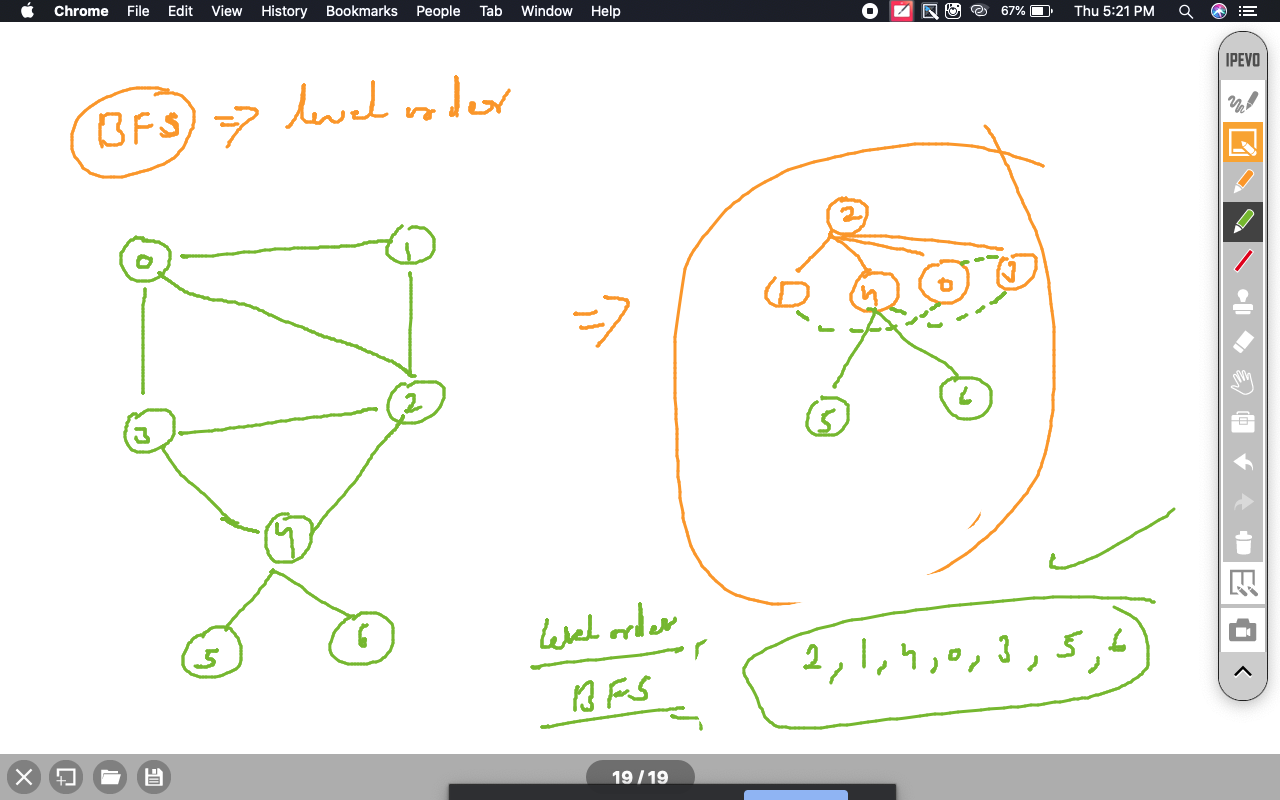 Chrome File Edit View History Bookmarks People Tab Window Help 67% Thu 5:21 PM
IPEVO
BFS => level order
0
1
3
2
4
5
6
=>
2
1
4
0
3
5
6
level order,
BFS,
2, 1, 4, 0, 3, 5, 6
19 / 19